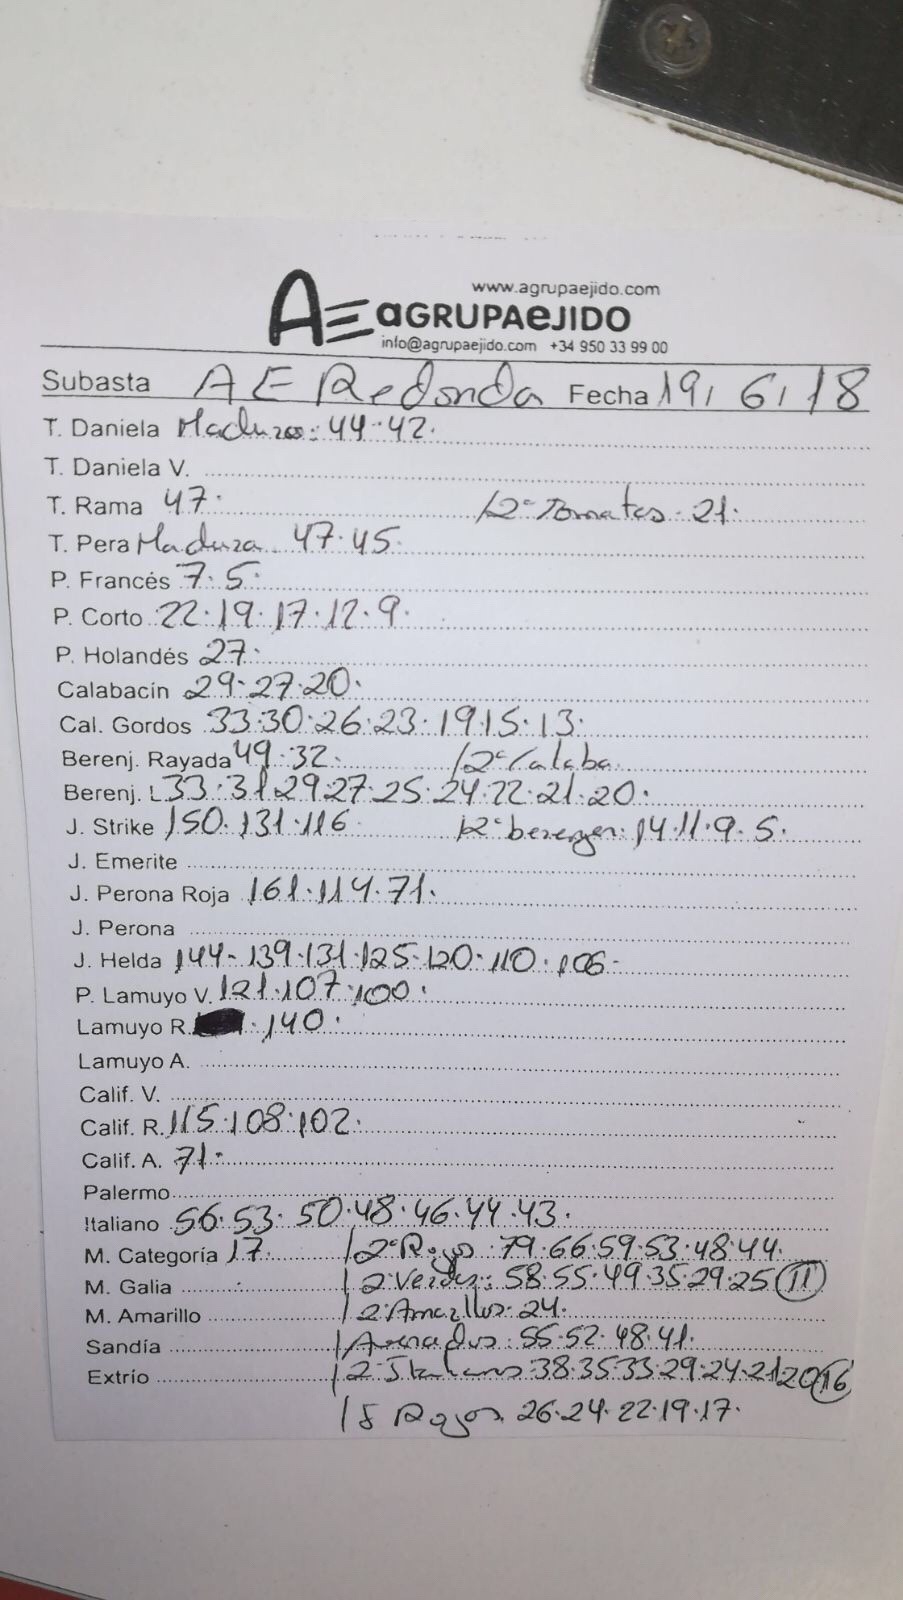 www.agrupaejido.com
AE aGRUPAeJIDO
info@agrupaejido.com +34 950 33 99 00
Subasta AE Redonda Fecha 19/ 6/ 18
T. Daniela Maduros: 44·42·
T. Daniela V.
T. Rama 47· /2ª Tomates·21·
T. Pera Maduza 47·45
P. Francés 7·5·
P. Corto 22·19·17·12·9·
P. Holandés 27·
Calabacín 29·27·20·
Cal. Gordos 33·30·26·23·19·15·13·
Berenj. Rayada 49·32· /2ª Calaba
Berenj. L 33·31·29·27·25·24·22·21·20·
J. Strike 150·131·116 /2ª berengen: 14·11·9·5·
J. Emerite
J. Perona Roja 161·114·71·
J. Perona
J. Helda 144·139·131·125·120·110·106·
P. Lamuyo V. 121·107·100·
Lamuyo R. ·140·
Lamuyo A.
Calif. V.
Calif. R. 115·108·102·
Calif. A. 71·
Palermo
Italiano 56·53·50·48·46·44·43·
M. Categoría 17· /2ª Rojos·79·66·59·53·48·44·
M. Galia /2ª Verdes: 58·55·49·35·29·25 (11)
M. Amarillo /2ª Amarillos·24·
Sandía /Asurados: 55·52·48·41·
Extrío /2ª Italianos·38·35·33·29·24·21·20 (16)
/F Rojos 26·24·22·19·17·